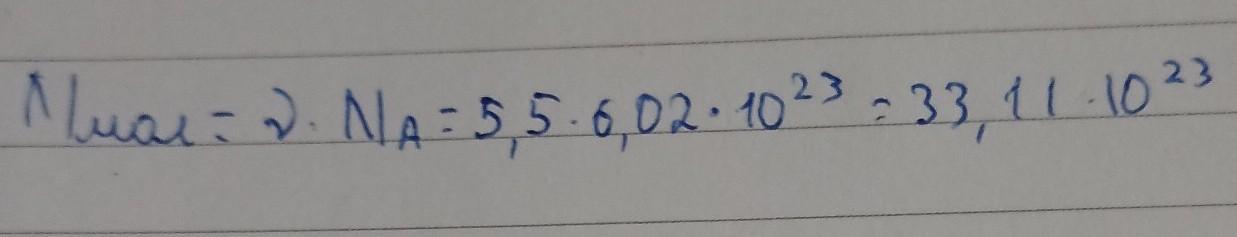 Nмол = ν · N_A = 5,5 · 6,02 · 10²³ = 33,11 · 10²³